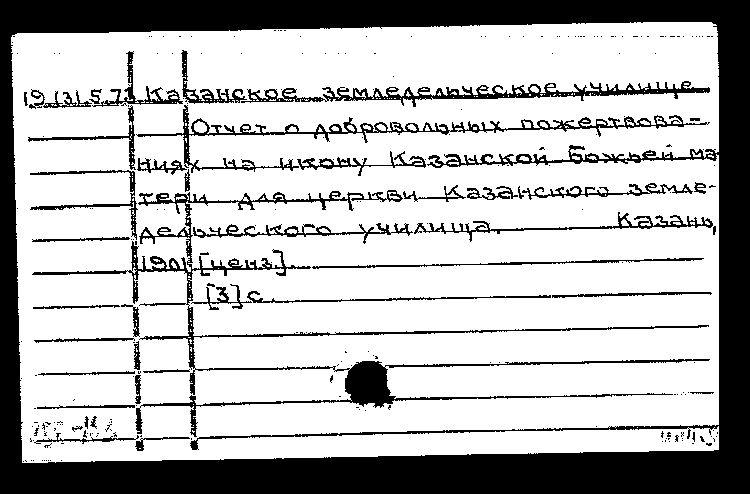 19.131.5.73 Казанское земледельческое училище
Отчет о добровольных пожертвова-
ниях на икону Казанской Божьей ма-
тери для церкви Казанского земле-
дельческого училища. Казань,
1901 [ценз].
[3] с.